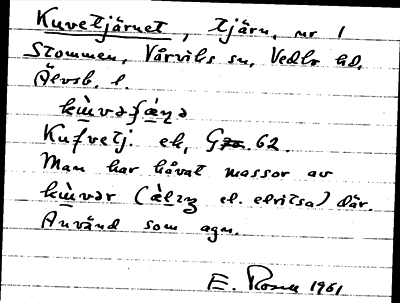 Kuvetjärnet, tjärn, nr 1
Stommen, Vårviks sn, Vedbo hd,
Älvsb. l.
Kufvetj. ek, 62.
Man har håvat massor av
kùvər ( el. elritsa) där.
Använd som agn.
E. Rosen 1961